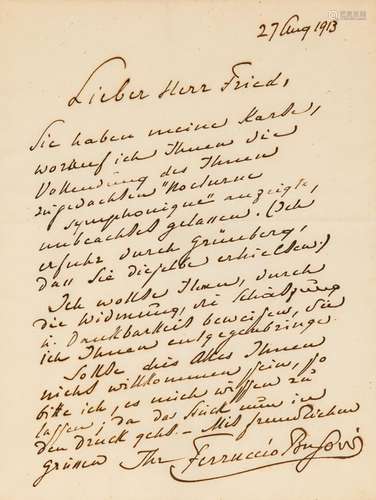 27 Aug 1913
Lieber Herr Fried,
Sie haben meine Karte,
worauf ich Ihnen die
Vollendung des Ihnen
zugedachten "Nocturne
symphonique" anzeigte,
unbeachtet gelassen. (Ich
erfuhr durch Grünberg,
dass Sie dieselbe erhielten.)
Ich wollte Ihnen, durch
die Widmung, die Schätzung
u. Dankbarkeit beweisen, die
ich Ihnen entgegenbringe.
Sollte dies Alles Ihnen
nicht willkommen sein, so
bitte ich, es mich wissen zu
lassen; da das Stück nun in
den Druck geht. – Mit freundlichen
Grüssen Ihr Ferruccio Busoni